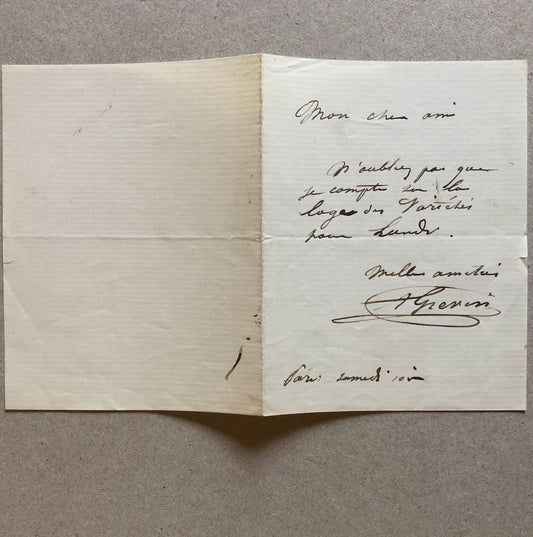 Mon cher ami
N'oubliez pas que
je compte sur la
loge des Variétés
pour Lundi.
Milles amitiés
AGrévin
Paris samedi soir